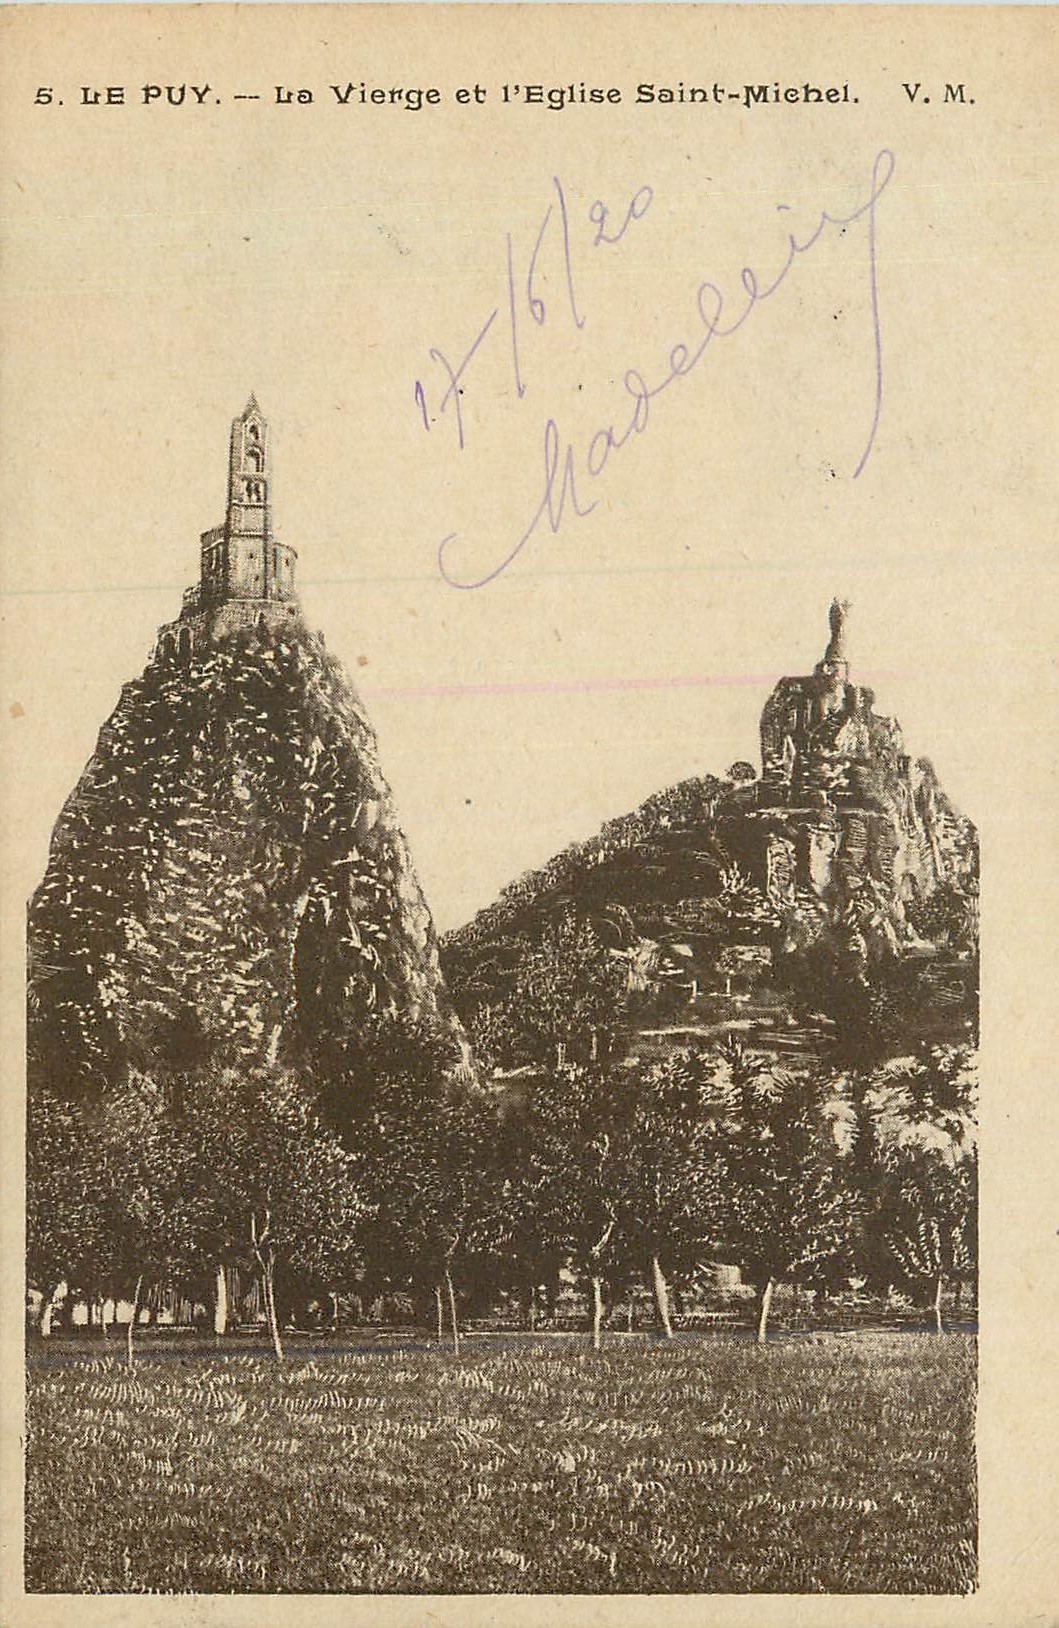 5. LE PUY. — La Vierge et l'Eglise Saint-Michel. V. M.
17/6/20
Madeleine